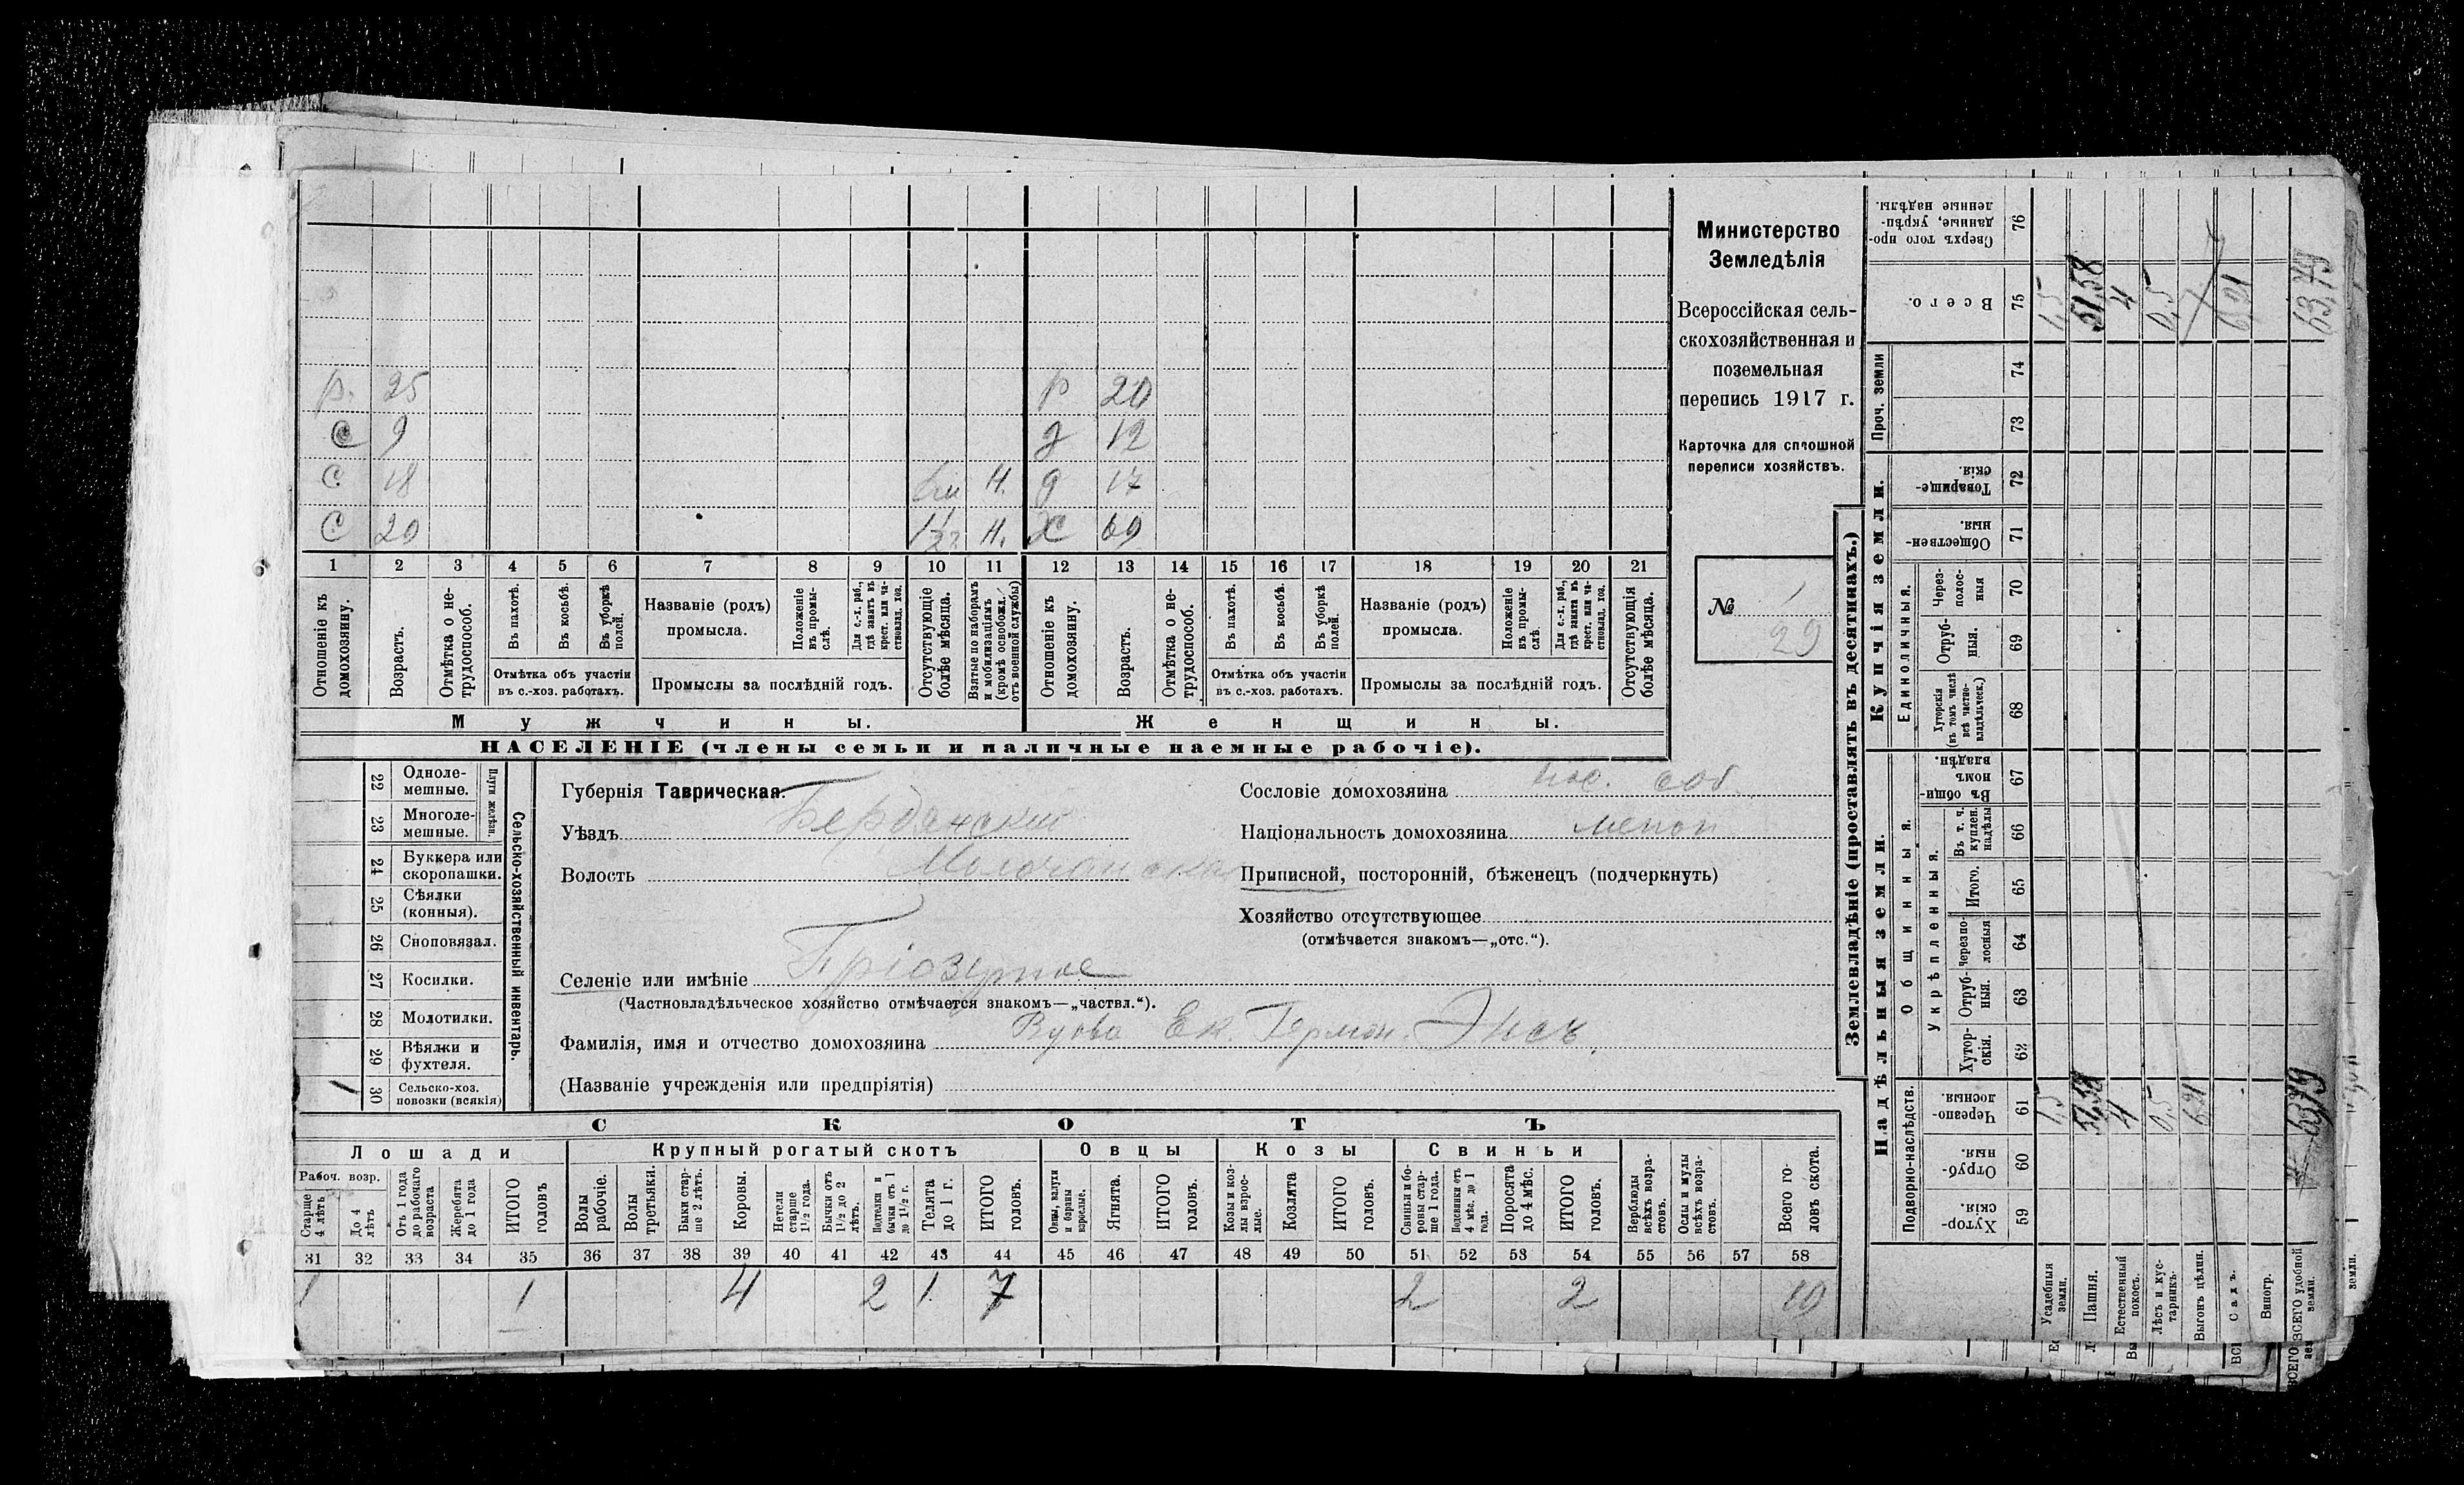 Министерство
Земледѣлія
Всероссійская сель-
скохозяйственная и
поземельная
перепись 1917 г.
Карточка для сплошной
переписи хозяйствъ.
№ 1
29
р. 25 р 20
с 9 д 12
с 18 Н. д 17
с 20 1½ Н. Х 69
1 2 3 4 5 6 7 8 9 10 11 12 13 14 15 16 17 18 19 20 21
Отношеніе къ домохозяину.
Возрастъ.
Отмѣтка о не-трудоспособ.
Въ пахотѣ.
Въ косьбѣ.
Въ уборкѣ полей.
Отмѣтка объ участіи
въ с.-хоз. работахъ.
Названіе (родъ)
промысла.
Положеніе въ промы-слѣ.
Для с.-х. раб., гдѣ занятъ въ крест. или ча-стновлад. хоз.
Промыслы за послѣдній годъ.
Отсутствующіе болѣе мѣсяца.
Взятые по наборамъ и мобилизаціямъ (кромѣ освобожд. отъ военной службы)
Отношеніе къ домохозяину.
Возрастъ.
Отмѣтка о не-трудоспособ.
Въ пахотѣ.
Въ косьбѣ.
Въ уборкѣ полей.
Отмѣтка объ участіи
въ с.-хоз. работахъ.
Названіе (родъ)
промысла.
Положеніе въ промы-слѣ.
Для с.-х. раб., гдѣ занята въ крест. или ча-стновлад. хоз.
Промыслы за послѣдній годъ.
Отсутствующія болѣе мѣсяца.
Мужчины. Женщины.
НАСЕЛЕНІЕ (члены семьи и наличные наемные рабочіе).
Сельско-хозяйственный инвентарь.
Плуги желѣзн.
22 Одноле-мешные.
23 Многоле-мешные.
24 Буккера или скоропашки.
25 Сѣялки (конныя).
26 Сноповязал.
27 Косилки.
28 Молотилки.
29 Вѣялки и фухтеля.
30 Сельско-хоз. повозки (всякія) 1
Губернія Таврическая.
Уѣздъ Бердянскій
Волость Молочанская
Селеніе или имѣніе
(Частновладѣльческое хозяйство отмѣчается знакомъ—„частвл.“).
Фамилія, имя и отчество домохозяина Вдова Ек. Герман. Энсъ.
(Названіе учрежденія или предпріятія)
Сословіе домохозяина пос. соб.
Національность домохозяина менон
Приписной, посторонній, бѣженецъ (подчеркнуть)
Хозяйство отсутствующее
(отмѣчается знакомъ—„отс.“).
СКОТЪ
Лошади Крупный рогатый скотъ Овцы Козы Свиньи
Рабоч. возр.
Старше 4 лѣтъ
До 4 лѣтъ
Отъ 1 года до рабочаго возраста
Жеребята до 1 года
ИТОГО головъ
Волы рабочіе.
Волы третьяки.
Быки стар-ше 2 лѣтъ.
Коровы.
Нетели старше 1½ года.
Бычки отъ 1½ до 2 лѣтъ.
Подтелки и бычки отъ 1 до 1½ г.
Телята до 1 г.
ИТОГО головъ.
Овцы, валухи и бараны взрослые.
Ягнята.
ИТОГО головъ.
Козы и коз-лы взрос-лые.
Козлята
ИТОГО головъ.
Свиньи и бо-ровы стар-ше 1 года.
Подсвинки отъ 4 мѣс. до 1 года.
Поросята до 4 мѣс.
ИТОГО головъ.
Верблюды всѣхъ возра-стовъ.
Ослы и мулы всѣхъ возра-стовъ.
Всего го-ловъ скота.
31 32 33 34 35 36 37 38 39 40 41 42 43 44 45 46 47 48 49 50 51 52 53 54 55 56 57 58
1 1 4 2 1 7 2 2 10
Землевладѣніе (проставлять въ десятинахъ.)
Надѣльныя земли. Купчія земли. Проч. земли
Подворно-наслѣдств.
Общинныя.
Укрѣпленныя.
Единоличныя.
Хутор-скія. 59
Отруб-ныя. 60
Черезпо-лосныя. 61
Хутор-скія. 62
Отруб-ныя. 63
Черезпо-лосныя 64
Итого. 65
Въ т. ч. куплен. надѣлы 66
Въ общин-номъ владѣн. 67
Хуторскія (въ томъ числѣ всѣ частно-владѣльческ.) 68
Отруб-ныя. 69
Через-полос-ныя 70
Обществен-ныя. 71
Товарище-скія. 72
73
74
Всего. 75
Сверхъ того про-данные, укрѣп-ленные надѣлы. 76
Усадебныя земли. 1,5 1,5
Пашня. 51,58 51,58
Естественный покосъ. 4 4
Лѣсъ и кус-тарникъ. 0,5 0,5
Выгонъ цѣлин. 6,21
Садъ. 6,21
Виногр.
ВСЕГО удобной земли. 63,79 63,79